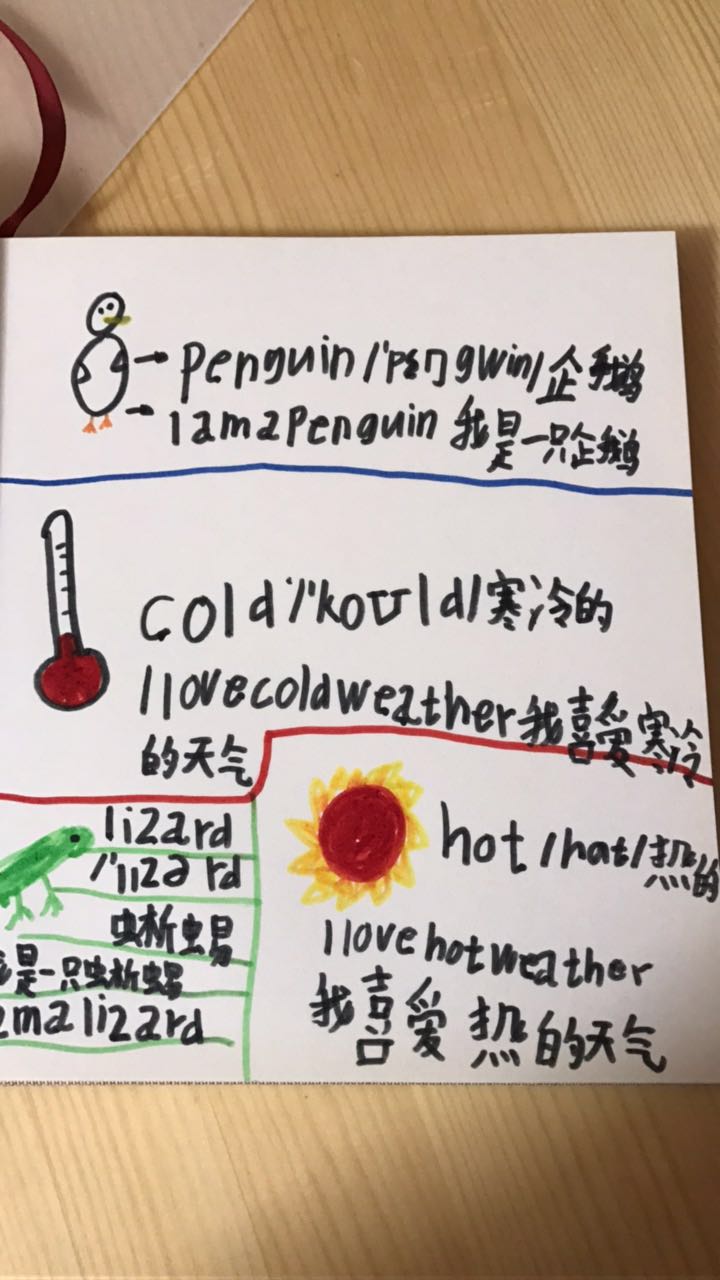 penguin /'pɛŋgwin/ 企鹅
I am a Penguin 我是一只企鹅
cold /'koʊld/ 寒冷的
I love cold weather 我喜爱寒冷
的天气
lizard
/'lizərd
蜥蜴
我是一只蜥蜴
am a lizard
hot /hat/ 热的
I love hot weather
我喜爱热的天气